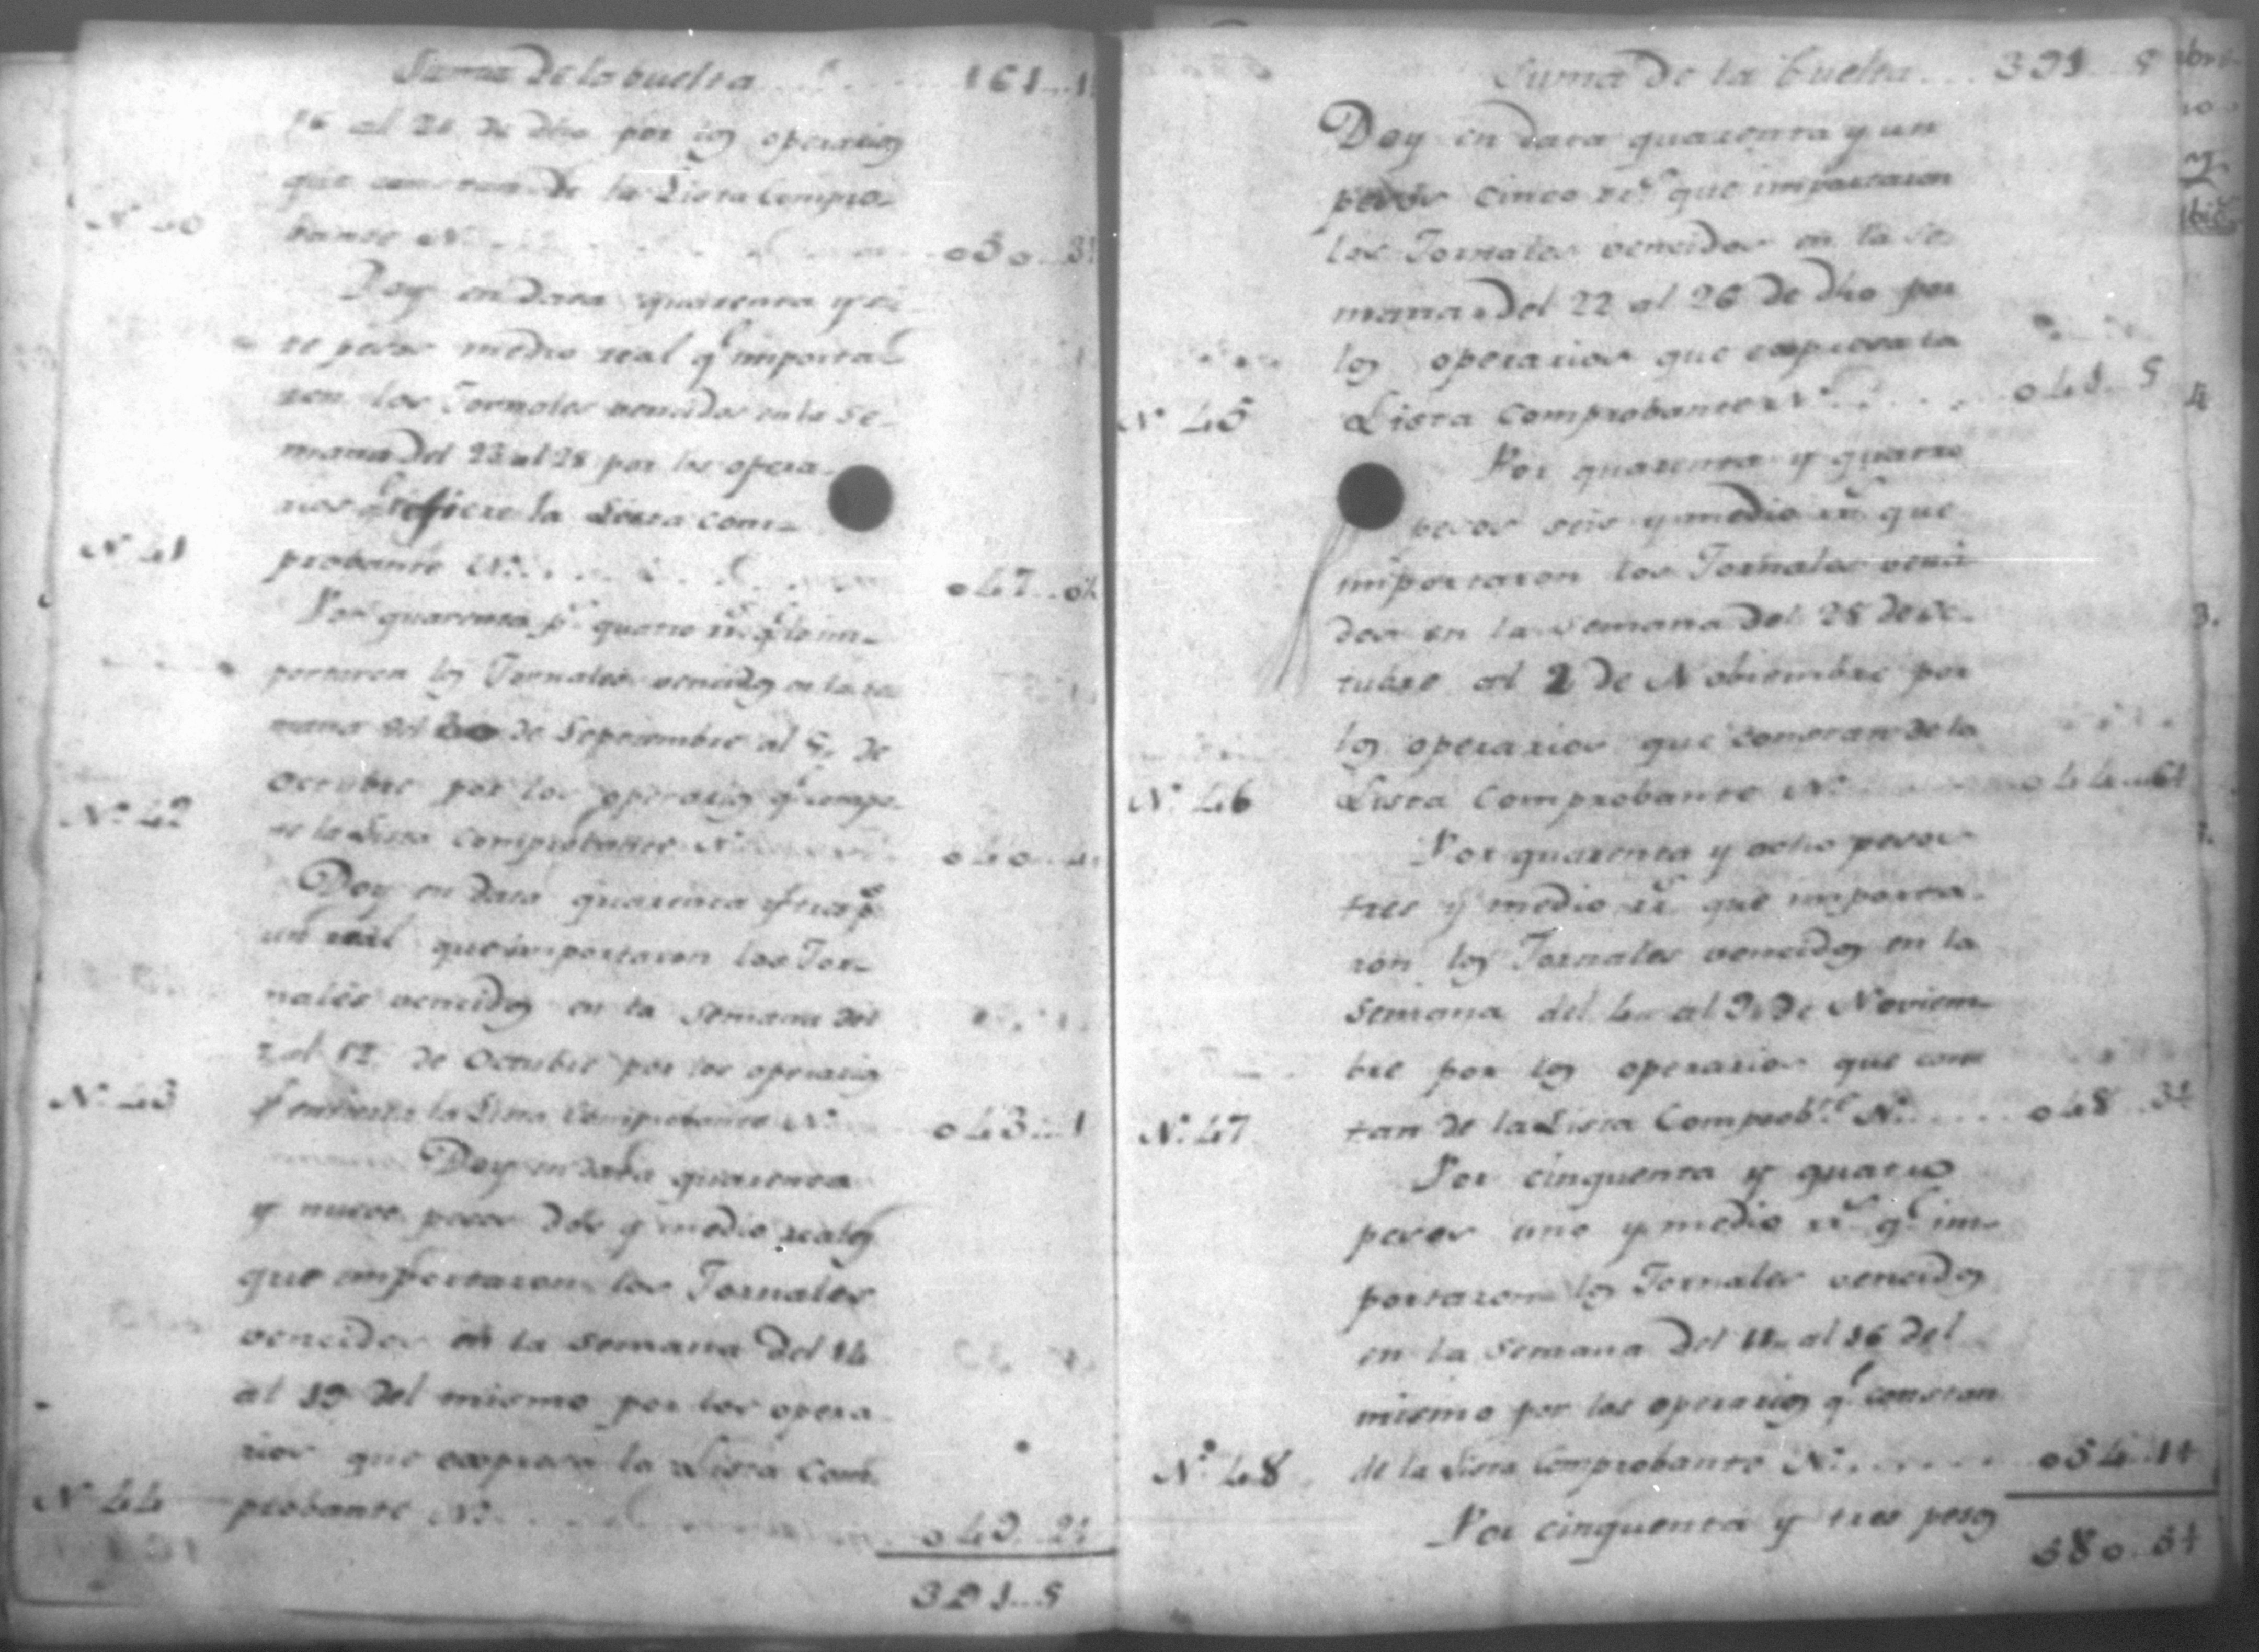 Suma de la buelta 161..1
16 al 21 de dho por los operarios
que constan de la Lista Compro-
N.º 40 bante N.º 050..3½
Doy en data quarenta y sie
te pesos medio real q.e importa-
ron los Jornales vencidos en la Se-
mana del 23 al 28 por los opera-
rios q.e refiere la Lista com-
N.º 41 probante N.º 047..0½
Por quarenta p.s quatro rr.s q.e im-
portaron los Jornales vencidos en la se
mana del 30 de Septiembre al 5, de
Octubre por los operarios q.e
N.º 42 la Lista Comprobante N.º 040..4
Doy en data quarenta y tres p.s
un real que importaron los Jor-
nales vencidos en la Semana del
7 al 12 de Octubre por los operarios
N.º 43 q.e la Lista Comprobante N.º 043..1
Doy en data quarenta
y nueve pesos dos y medio reales
que importaron los Jornales
vencidos en la Semana del 14
al 19 del mismo por los opera
rios que expresa la Lista Com-
N.º 44 probante N.º 049..2½
391..5
Suma de la buelta 391..5
Doy en data quarenta y un
pesos cinco rr.s que importaron
los Jornales vencidos en la Se-
mana del 22 al 26 de dho por
los operarios que expresa la
N.º 45 Lista Comprobante N.º 041..5
Por quarenta y quatro
pesos seis y medio rr.s que
importaron los Jornales venci
dos en la Semana del 28 de Oc-
tubre al 2 de Nobiembre por
los operarios que constan de la
N.º 46 Lista Comprobante N.º 044..6½
Por quarenta y ocho pesos
tres y medio rr.s que importa-
ron los Jornales vencidos en la
Semana del 4 al 9 de Noviem-
bre por los operarios que cons
N.º 47 tan de la Lista Comprob.te N.º 048..3½
Por cinquenta y quatro
pesos uno y medio rr.s q.e im-
portaron los Jornales vencidos
en la Semana del 11 al 16 del
mismo por los operarios q.e constan
N.º 48 de la Lista Comprobante N.º 054..1½
Por cinquenta y tres pesos
580..5½